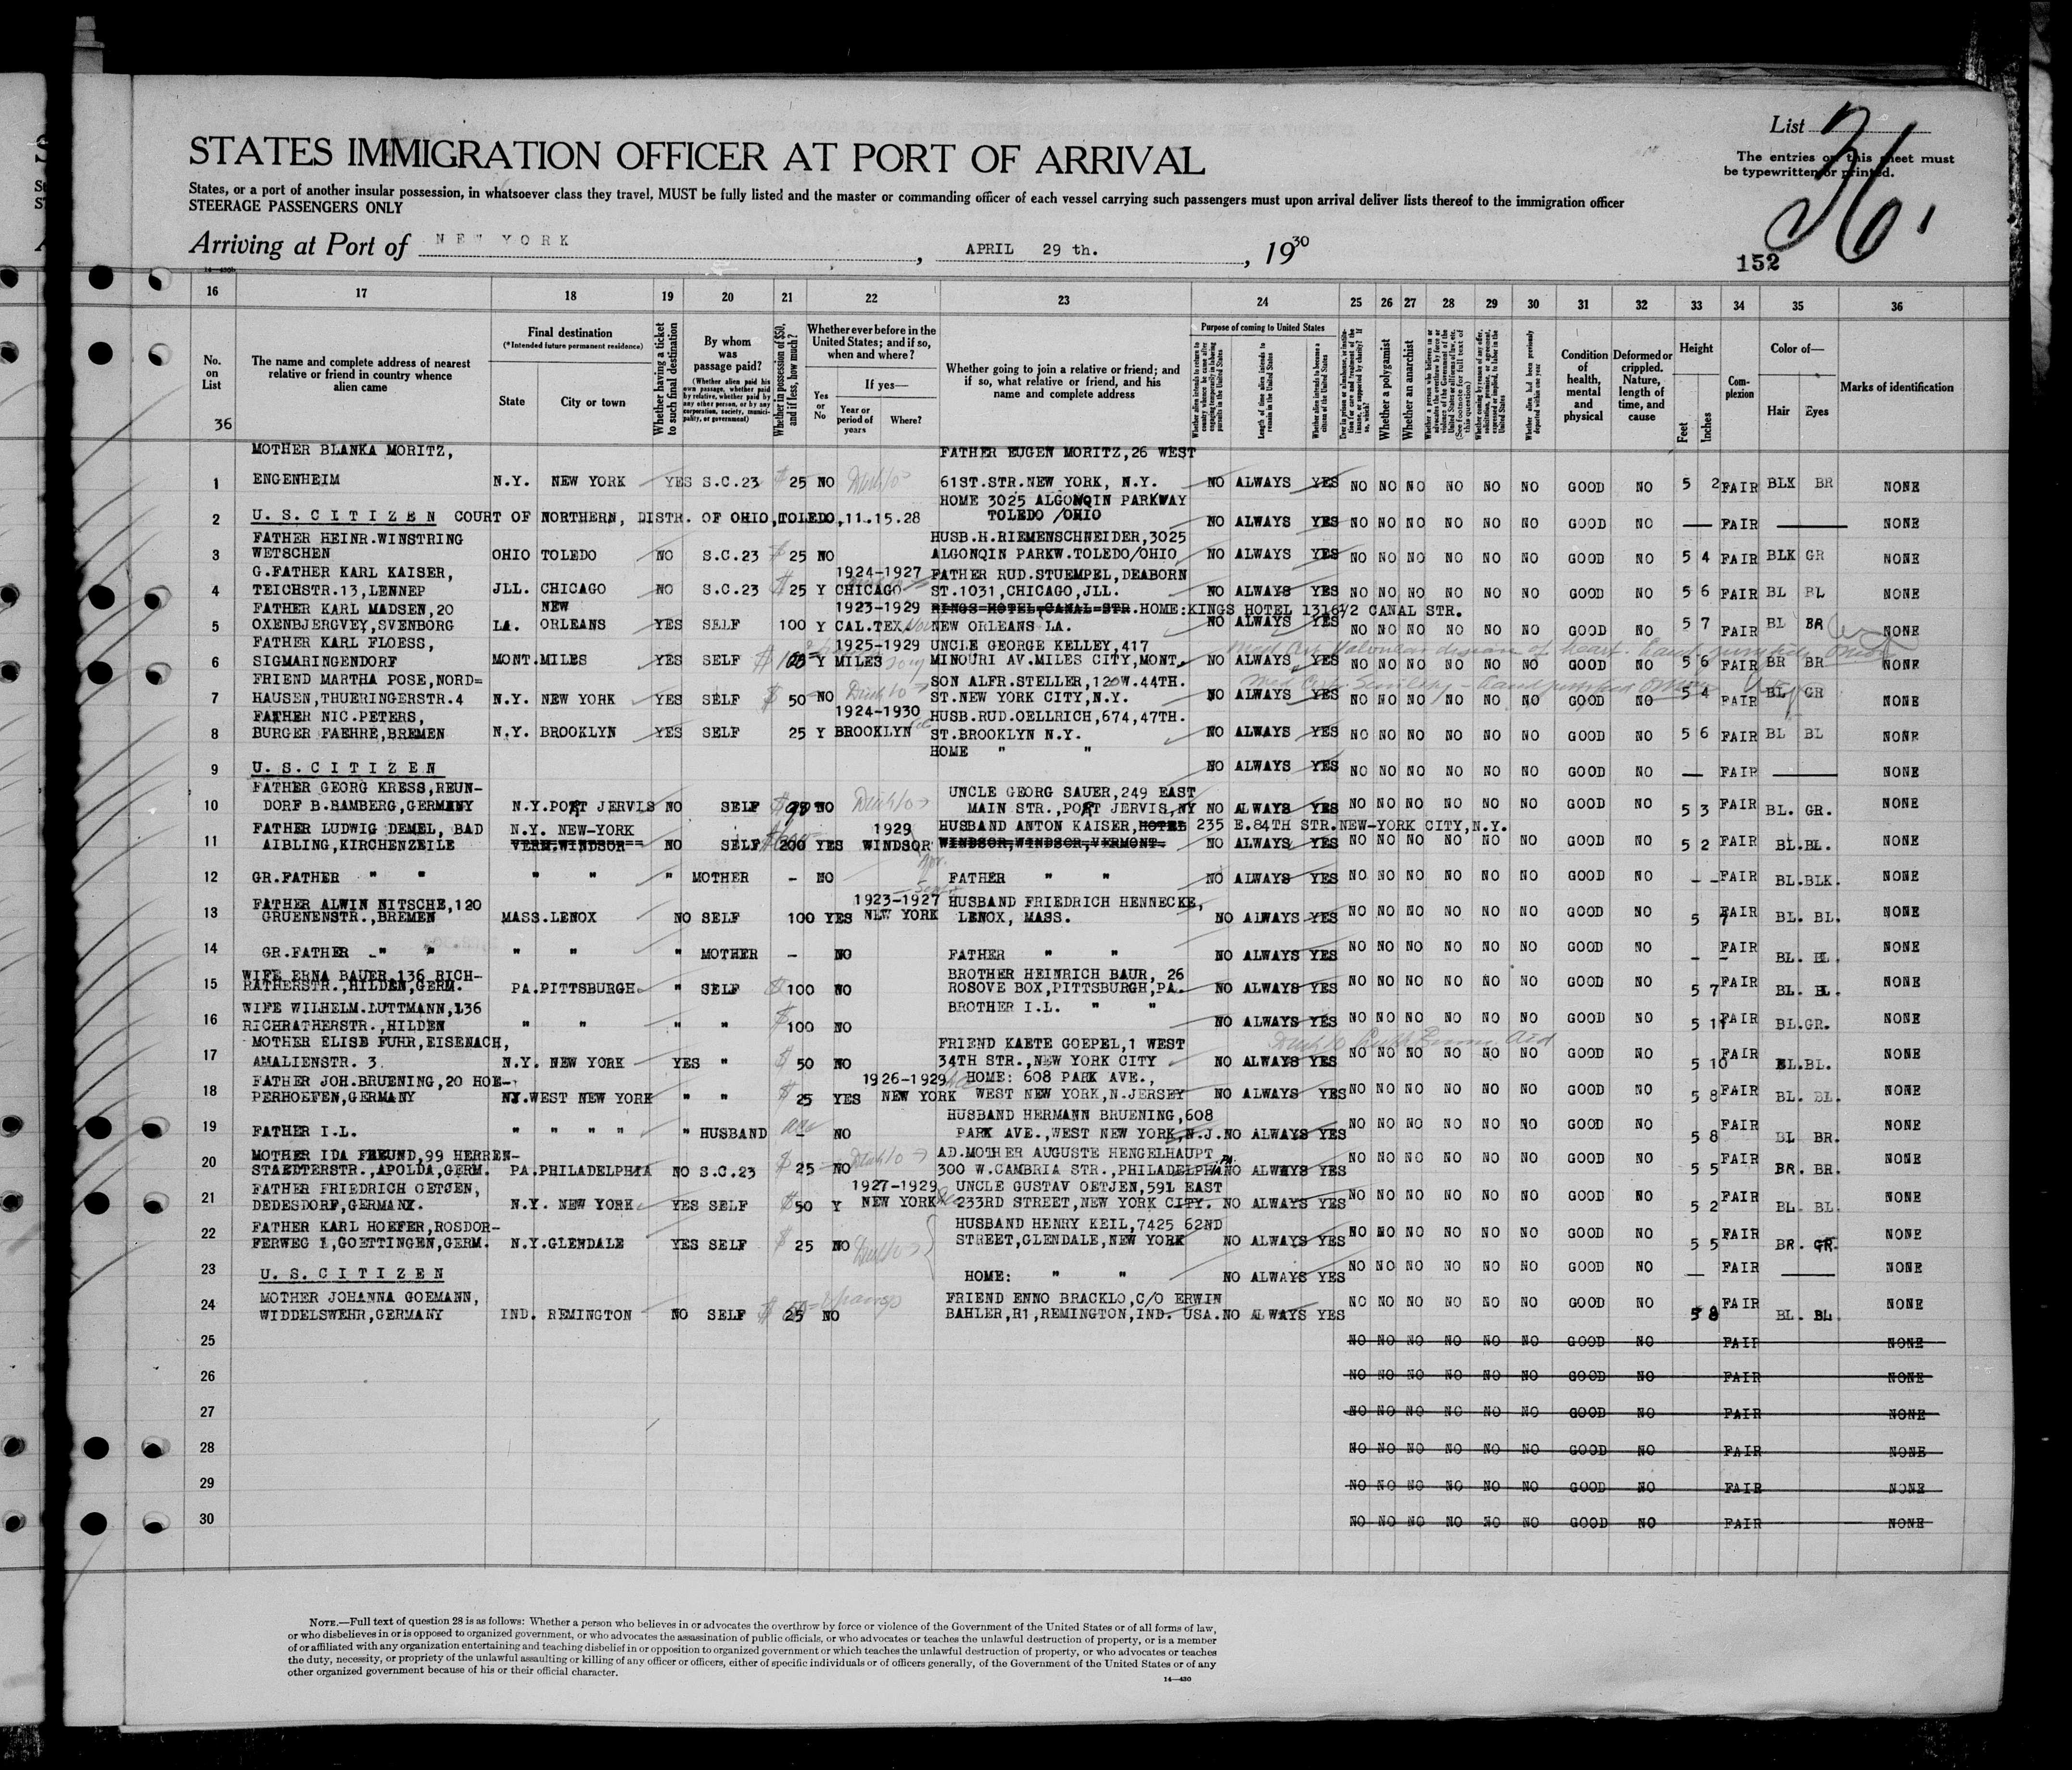 List 36.
The entries on this sheet must
be typewritten or printed.
STATES IMMIGRATION OFFICER AT PORT OF ARRIVAL
States, or a port of another insular possession, in whatsoever class they travel, MUST be fully listed and the master or commanding officer of each vessel carrying such passengers must upon arrival deliver lists thereof to the immigration officer
STEERAGE PASSENGERS ONLY
Arriving at Port of NEW YORK, APRIL 29 th., 1930
152
16 17 18 19 20 21 22 23 24 25 26 27 28 29 30 31 32 33 34 35 36
No. on List
36
The name and complete address of nearest relative or friend in country whence alien came
Final destination
(*Intended future permanent residence)
State
City or town
Whether having a ticket to such final destination
By whom was passage paid?
(Whether alien paid his own passage, whether paid by relative, whether paid by any other person, or by any corporation, society, municipality, or government)
Whether in possession of $50, and if less, how much?
Whether ever before in the United States; and if so, when and where?
Yes or No
If yes—
Year or period of years
Where?
Whether going to join a relative or friend; and if so, what relative or friend, and his name and complete address
Purpose of coming to United States
Length of time alien intends to remain in the United States
Whether alien intends to become a citizen of the United States
Whether a polygamist
Whether an anarchist
Whether alien had been previously deported within one year
Condition of health, mental and physical
Deformed or crippled. Nature, length of time, and cause
Height
Feet
Inches
Complexion
Color of—
Hair
Eyes
Marks of identification
MOTHER BLANKA MORITZ, FATHER EUGEN MORITZ, 26 WEST
1 ENGENHEIM N.Y. NEW YORK YES S.C.23 $ 25 NO 61ST.STR.NEW YORK, N.Y. NO ALWAYS YES NO NO NO NO NO NO GOOD NO 5 2 FAIR BLK BR NONE
HOME 3025 ALGONQIN PARKWAY
2 U.S.CITIZEN COURT OF NORTHERN, DISTR. OF OHIO,TOLEDO,11.15.28 TOLEDO /OHIO NO ALWAYS YES NO NO NO NO NO NO GOOD NO — FAIR — NONE
FATHER HEINR.WINSTRING HUSB.H.RIEMENSCHNEIDER,3025
3 WETSCHEN OHIO TOLEDO NO S.C.23 $ 25 NO ALGONQIN PARKW.TOLEDO/OHIO NO ALWAYS YES NO NO NO NO NO NO GOOD NO 5 4 FAIR BLK GR NONE
G.FATHER KARL KAISER, 1924-1927 FATHER RUD.STUEMPEL,DEABORN
4 TEICHSTR.13,LENNEP JLL. CHICAGO NO S.C.23 $ 25 Y CHICAGO ST.1031,CHICAGO,JLL. NO ALWAYS YES NO NO NO NO NO NO GOOD NO 5 6 FAIR BL BL NONE
FATHER KARL MADSEN,20 NEW 1923-1929 KINGS HOTEL,CANAL STR.HOME:KINGS HOTEL 1316 1/2 CANAL STR.
5 OXENBJERGVEY,SVENBORG LA. ORLEANS YES SELF 100 Y CAL.TEX. NEW ORLEANS LA. NO ALWAYS YES NO NO NO NO NO NO GOOD NO 5 7 FAIR BL BR NONE
FATHER KARL FLOESS, 1925-1929 UNCLE GEORGE KELLEY,417
6 SIGMARINGENDORF MONT.MILES YES SELF $ Y MILES MINOURI AV.MILES CITY,MONT. NO ALWAYS YES NO NO NO NO NO NO GOOD NO 5 6 FAIR BR BR NONE
FRIEND MARTHA POSE,NORD= SON ALFR.STELLER,120W.44TH.
7 HAUSEN,THUERINGERSTR.4 N.Y. NEW YORK YES SELF $ 50 NO ST.NEW YORK CITY,N.Y. NO ALWAYS YES NO NO NO NO NO NO GOOD NO 5 4 FAIR BL GR NONE
FATHER NIC.PETERS, 1924-1930 HUSB.RUD.OELLRICH,674,47TH.
8 BURGER FAEHRE,BREMEN N.Y. BROOKLYN YES SELF 25 Y BROOKLYN ST.BROOKLYN N.Y. NO ALWAYS YES NO NO NO NO NO NO GOOD NO 5 6 FAIR BL BL NONE
HOME " "
9 U.S.CITIZEN NO ALWAYS YES NO NO NO NO NO NO GOOD NO — FAIR — NONE
FATHER GEORG KRESS,REUN- UNCLE GEORG SAUER,249 EAST
10 DORF B.BAMBERG,GERMANY N.Y.PORT JERVIS NO SELF $ 90 NO MAIN STR.,PORT JERVIS,NY NO ALWAYS YES NO NO NO NO NO NO GOOD NO 5 3 FAIR BL. GR. NONE
FATHER LUDWIG DEMEL, BAD N.Y. NEW-YORK 1929 HUSBAND ANTON KAISER,HOTEL 235 E.84TH STR.NEW-YORK CITY,N.Y.
11 AIBLING,KIRCHENZEILE VERM.WINDSOR NO SELF 200 YES WINDSOR WINDSOR,WINDSOR,VERMONT. NO ALWAYS YES NO NO NO NO NO NO GOOD NO 5 2 FAIR BL.BL. NONE
12 GR.FATHER " " " " " MOTHER - NO FATHER " " NO ALWAYS YES NO NO NO NO NO NO GOOD NO - - FAIR BL.BLK. NONE
FATHER ALWIN NITSCHE,120 1923-1927 HUSBAND FRIEDRICH HENNECKE,
13 GRUENENSTR.,BREMEN MASS.LENOX NO SELF 100 YES NEW YORK LENOX, MASS. NO ALWAYS YES NO NO NO NO NO NO GOOD NO 5 7 FAIR BL. BL. NONE
14 GR.FATHER " " " " " MOTHER - NO FATHER " " NO ALWAYS YES NO NO NO NO NO NO GOOD NO - - FAIR BL. BL. NONE
WIFE ERNA BAUER,136 RICH- BROTHER HEINRICH BAUR, 26
15 RATHERSTR.,HILDEN,GERM. PA.PITTSBURGH " SELF $ 100 NO ROSOVE BOX,PITTSBURGH,PA. NO ALWAYS YES NO NO NO NO NO NO GOOD NO 5 7 FAIR BL. BL. NONE
WIFE WILHELM.LUTTMANN,136 BROTHER I.L. " "
16 RICHRATHERSTR.,HILDEN " " " " $ 100 NO NO ALWAYS YES NO NO NO NO NO NO GOOD NO 5 11 FAIR BL.GR. NONE
MOTHER ELISE FUHR,EISENACH, FRIEND KAETE GOEPEL,1 WEST
17 AMALIENSTR. 3 N.Y. NEW YORK YES " $ 50 NO 34TH STR.,NEW YORK CITY NO ALWAYS YES NO NO NO NO NO NO GOOD NO 5 10 FAIR BL.BL. NONE
FATHER JOH.BRUENING,20 HOE- 1926-1929 HOME: 608 PARK AVE.,
18 PERHOEFEN,GERMANY NJ.WEST NEW YORK " " $ 25 YES NEW YORK WEST NEW YORK,N.JERSEY NO ALWAYS YES NO NO NO NO NO NO GOOD NO 5 8 FAIR BL. BL. NONE
HUSBAND HERMANN BRUENING,608
19 FATHER I.L. " " " " " HUSBAND - NO PARK AVE.,WEST NEW YORK,N.J. NO ALWAYS YES NO NO NO NO NO NO GOOD NO 5 8 FAIR BL BR. NONE
MOTHER IDA FREUND,99 HERREN- AD.MOTHER AUGUSTE HENGELHAUPT
20 STAEDTERSTR.,APOLDA,GERM. PA.PHILADELPHIA NO S.C.23 $ 25 NO 300 W.CAMBRIA STR.,PHILADELPHIA PA. NO ALWAYS YES NO NO NO NO NO NO GOOD NO 5 5 FAIR BR. BR. NONE
FATHER FRIEDRICH OETJEN, 1927-1929 UNCLE GUSTAV OETJEN,591 EAST
21 DEDESDORF,GERMANY. N.Y. NEW YORK YES SELF $ 50 Y NEW YORK 233RD STREET,NEW YORK CITY. NO ALWAYS YES NO NO NO NO NO NO GOOD NO 5 2 FAIR BL. BL. NONE
FATHER KARL HOEFER,ROSDOR- HUSBAND HENRY KEIL,7425 62ND
22 FERWEG 1,GOETTINGEN,GERM. N.Y.GLENDALE YES SELF $ 25 NO STREET,GLENDALE,NEW YORK NO ALWAYS YES NO NO NO NO NO NO GOOD NO 5 5 FAIR BR. GR. NONE
23 U.S.CITIZEN HOME: " " NO ALWAYS YES NO NO NO NO NO NO GOOD NO — FAIR — NONE
MOTHER JOHANNA GOEMANN, FRIEND ENNO BRACKLO,C/O ERWIN
24 WIDDELSWEHR,GERMANY IND. REMINGTON NO SELF $ 25 NO BAHLER,R1,REMINGTON,IND. USA. NO ALWAYS YES NO NO NO NO NO NO GOOD NO 5 8 FAIR BL. BL. NONE
25 NO NO NO NO NO NO GOOD NO FAIR NONE
26 NO NO NO NO NO NO GOOD NO FAIR NONE
27 NO NO NO NO NO NO GOOD NO FAIR NONE
28 NO NO NO NO NO NO GOOD NO FAIR NONE
29 NO NO NO NO NO NO GOOD NO FAIR NONE
30 NO NO NO NO NO NO GOOD NO FAIR NONE
NOTE.—Full text of question 28 is as follows: Whether a person who believes in or advocates the overthrow by force or violence of the Government of the United States or of all forms of law,
or who disbelieves in or is opposed to organized government, or who advocates the assassination of public officials, or who advocates or teaches the unlawful destruction of property, or is a member
of or affiliated with any organization entertaining and teaching disbelief in or opposition to organized government or which teaches the unlawful destruction of property, or who advocates or teaches
the duty, necessity, or propriety of the unlawful assaulting or killing of any officer or officers, either of specific individuals or of officers generally, of the Government of the United States or of any
other organized government because of his or their official character.
14—430